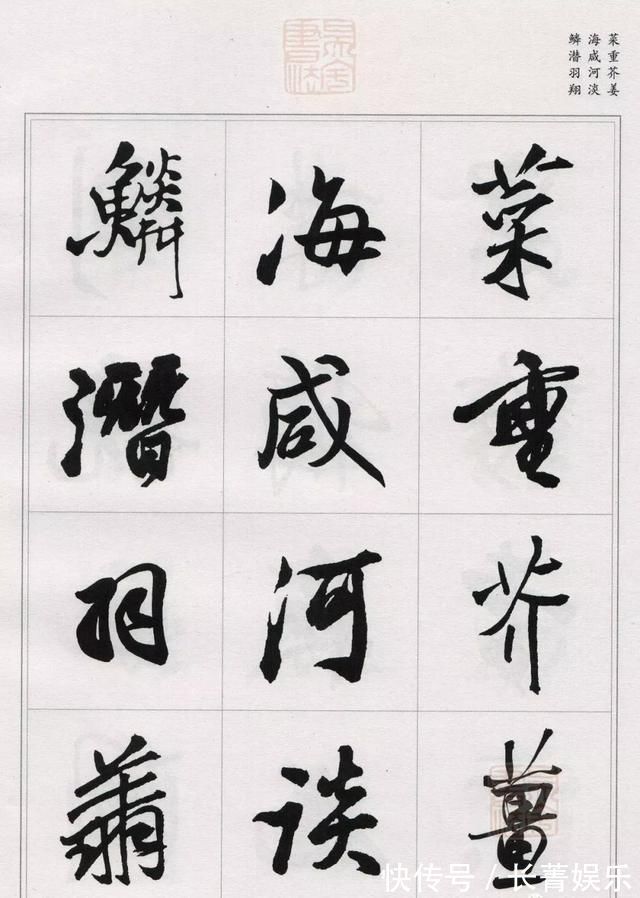 菜重芥姜
海咸河淡
鳞潜羽翔
菜重芥薑
海咸河淡
鱗潛羽翔
快传号 / 长菁娱乐